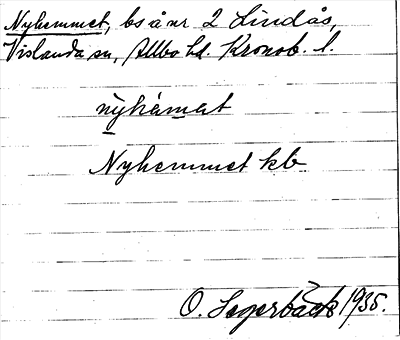 Nyhemmet, bs å nr 2 Lindås,
Vislanda sn, Allbo hd. Kronob. l.
nyhemet
Nyhemmet kb
O. Segerbäck 1935.